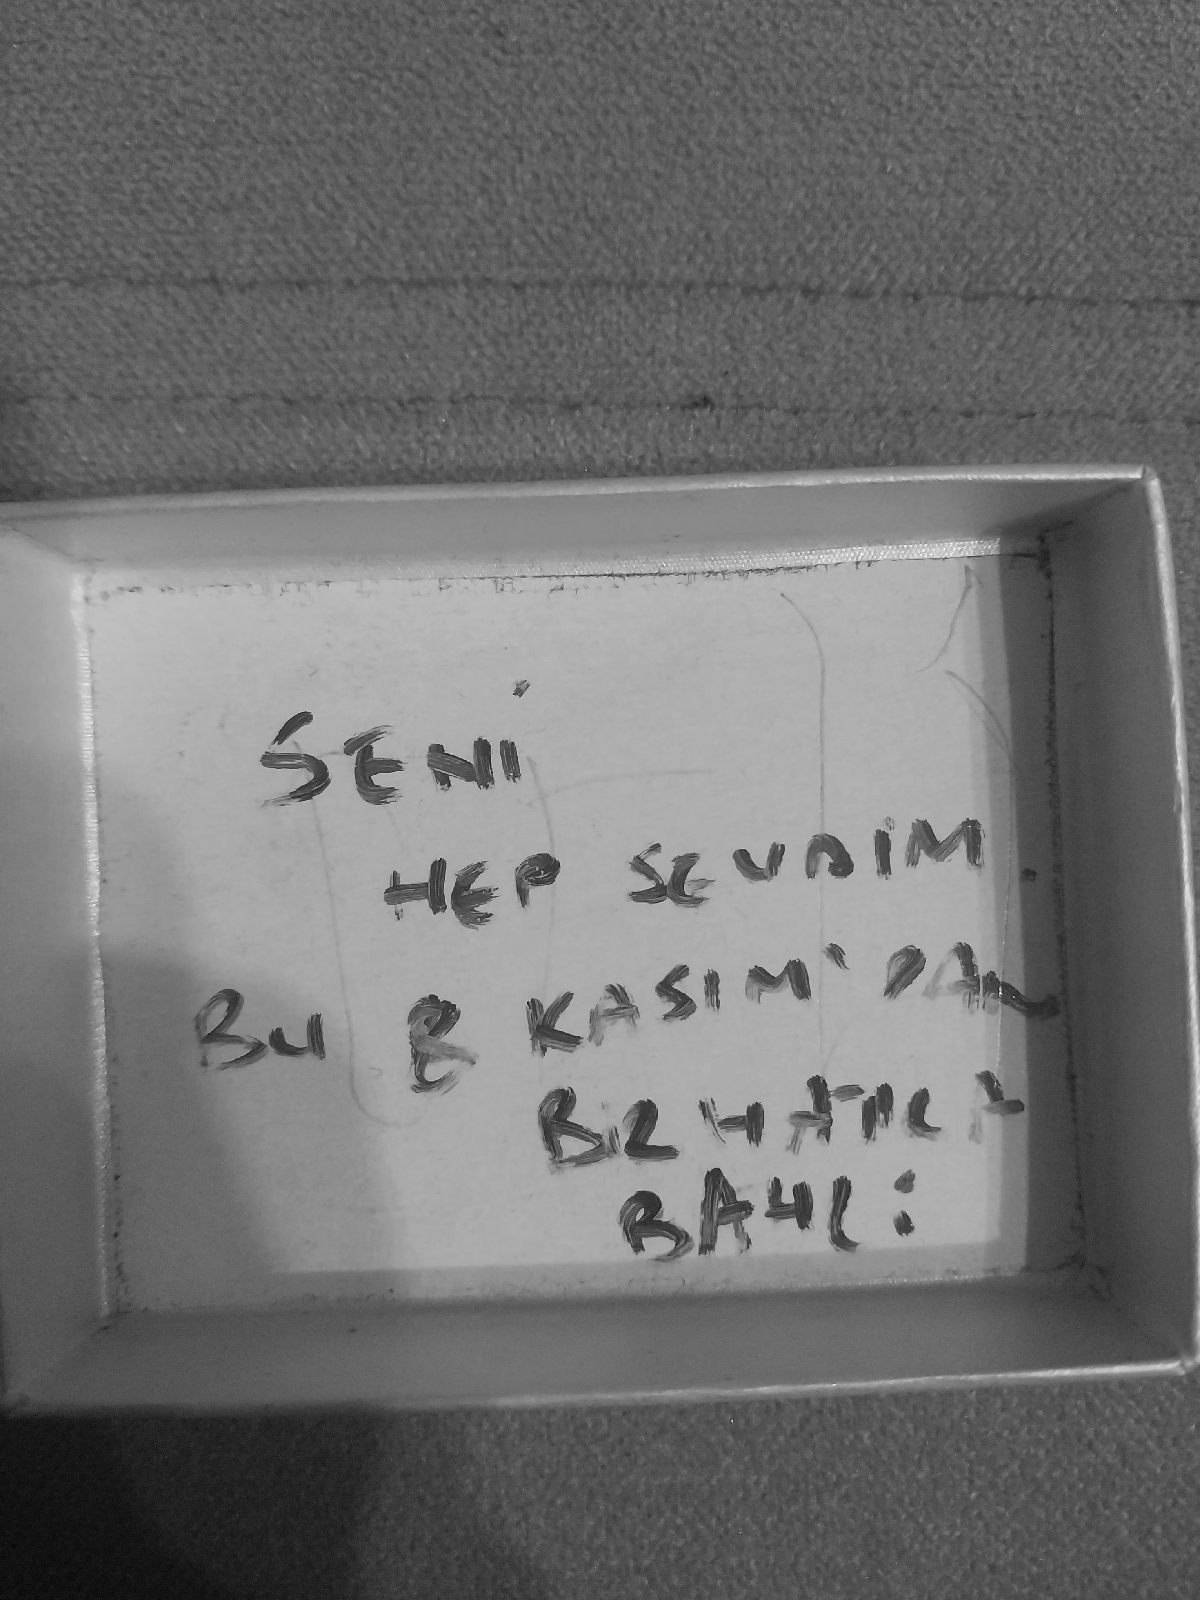 SENİ
HEP SEVDİM
BU 8 KASIM'DAN
BİZ HATICA
BAYL: